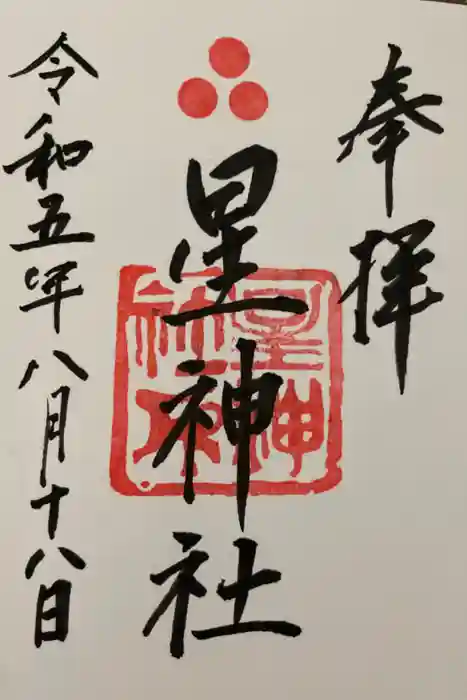 奉拝
星神社
星神社印
令和五年八月十八日